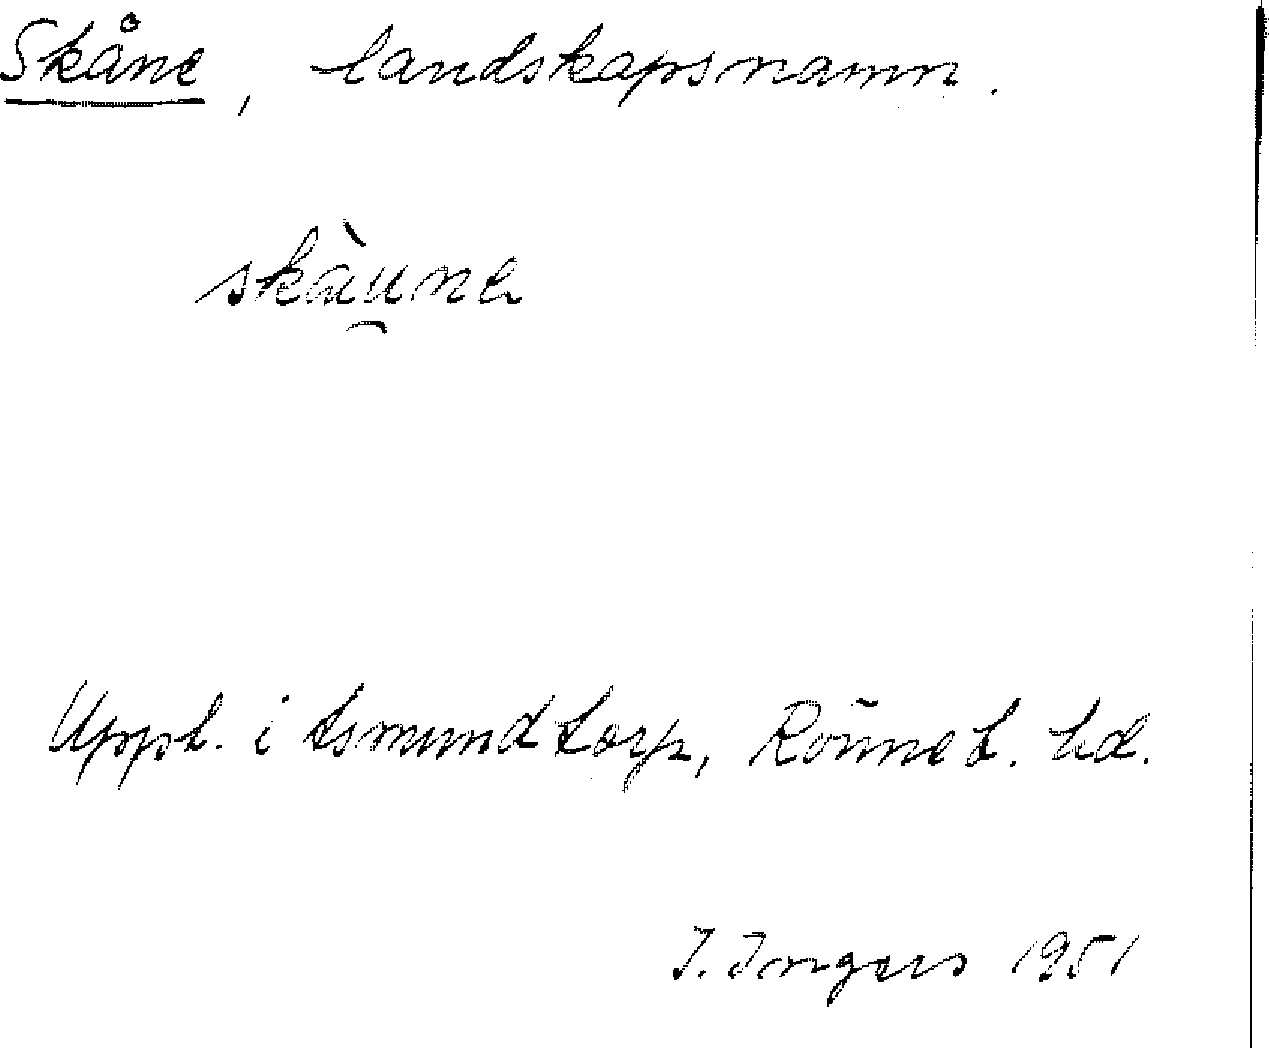 Skåne, landskapsnamn.
skàu̯na
Uppt. i Asmundtorp, Rönneb. hd.
I. Ingers 1951